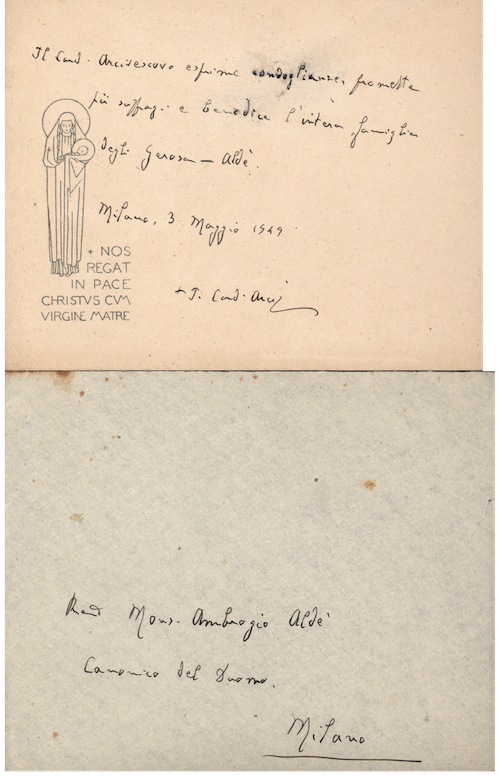 Il Card. Arcivescovo esprime condoglianze, promette
più suffragi e benedice l'intera famiglia
degli Gerosa - Aldè.
Milano, 3 Maggio 1949
+ NOS
REGAT
IN PACE
CHRISTVS CVM
VIRGINE MATRE
+ I. Card. Arciv
Rev Mons. Ambrogio Aldè
Canonico del Duomo.
Milano